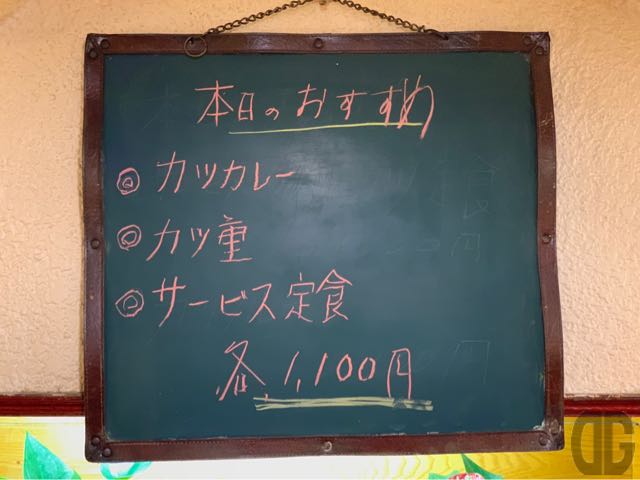 本日のおすすめ
◎カツカレー
◎カツ重
◎サービス定食
各1,100円
DG